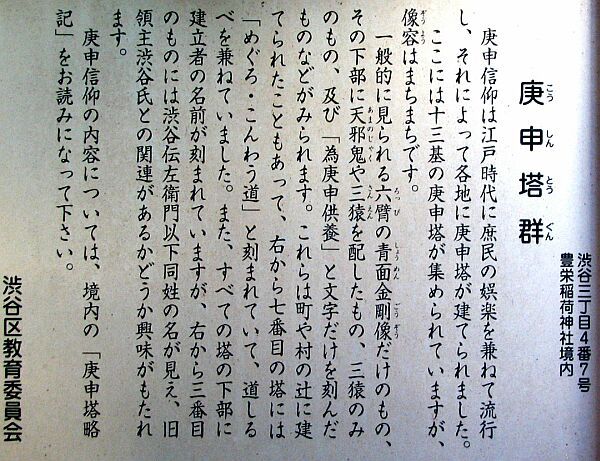 渋谷三丁目4番7号
豊栄稲荷神社境内
庚申塔群
こうしんとうぐん
庚申信仰は江戸時代に庶民の娯楽を兼ねて流行
し、それによって各地に庚申塔が建てられました。
ここには十三基の庚申塔が集められていますが、
像容はまちまちです。
ぞうよう
一般的に見られる六臂の青面金剛像だけのもの、
ろっぴ しょうめん こんごうぞう
その下部に天邪鬼や三猿を配したもの、三猿のみ
あまのじゃく さんえん
のもの、及び「為庚申供養」と文字だけを刻んだ
ものなどがみられます。これらは町や村の辻に建
てられたこともあって、右から七番目の塔には
「めぐろ・こんわう道」と刻まれていて、道しる
べを兼ねていました。また、すべての塔の下部に
建立者の名前が刻まれていますが、右から三番目
のものには渋谷伝左衛門以下同姓の名が見え、旧
領主渋谷氏との関連があるかどうか興味がもたれ
ます。
庚申信仰の内容については、境内の「庚申塔略
記」をお読みになって下さい。
渋谷区教育委員会